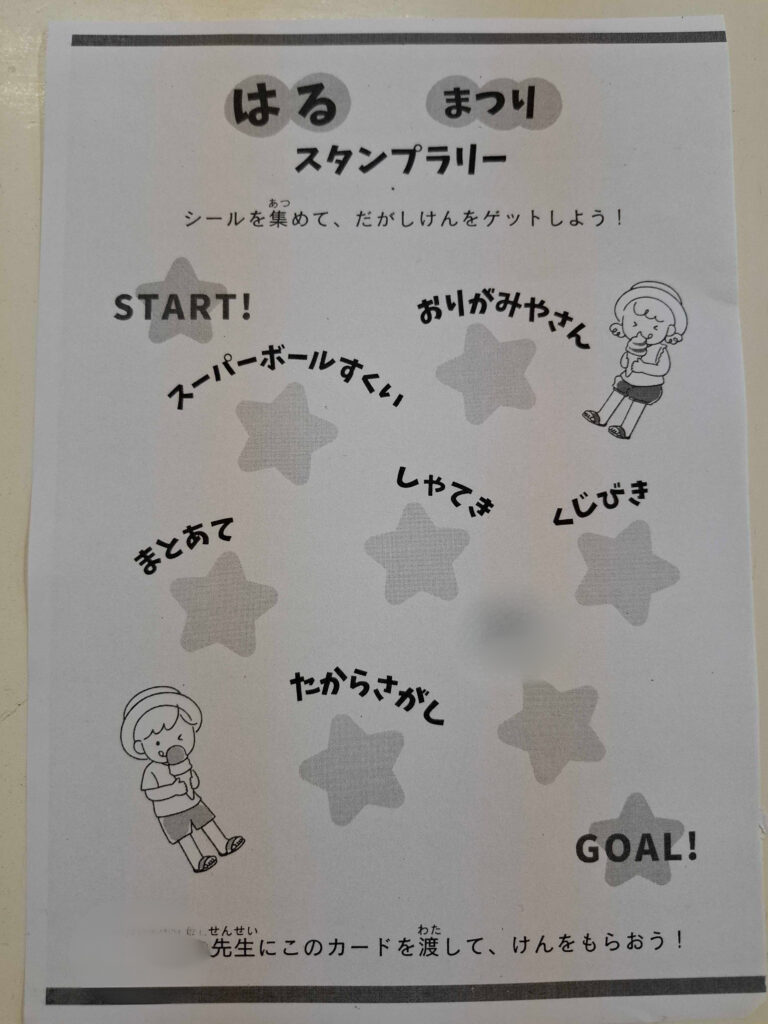 はる まつり
スタンプラリー
シールを集めて、だがしけんをゲットしよう！
あつ
START!
おりがみやさん
スーパーボールすくい
しゃてき
くじびき
まとあて
たからさがし
GOAL!
せんせい わた
先生にこのカードを渡して、けんをもらおう！